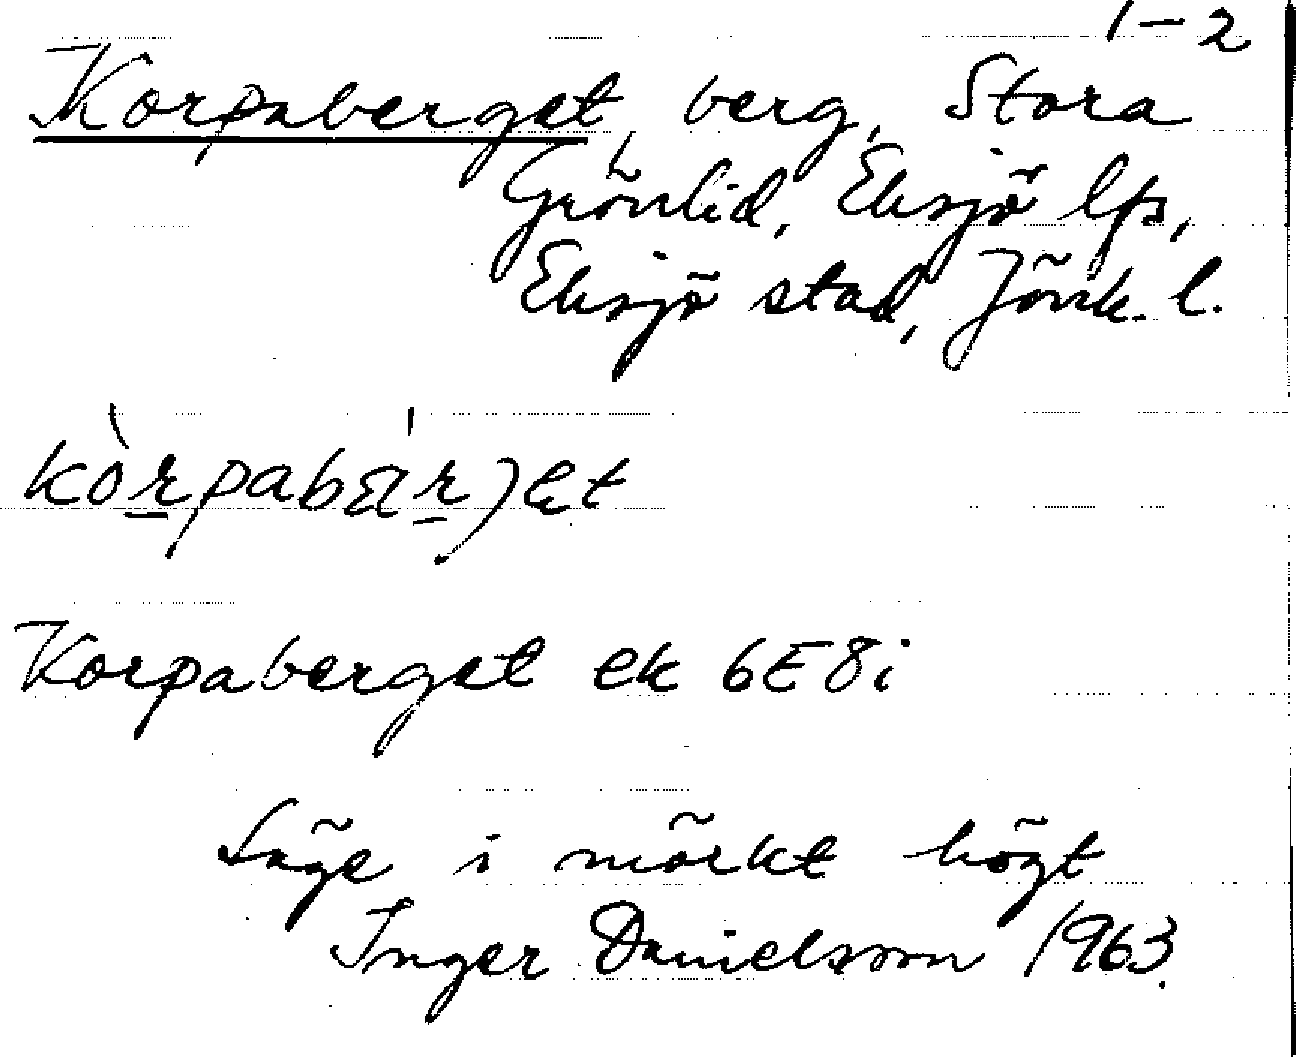 1-2
Korpaberget, berg, Stora
Grönlid, Eksjö lfs,
Eksjö stad, Jönk. l.
kòrpabä́rjet
Korpaberget ek 6E8i
Läge i mörkt högt
Inger Danielsson 1963.